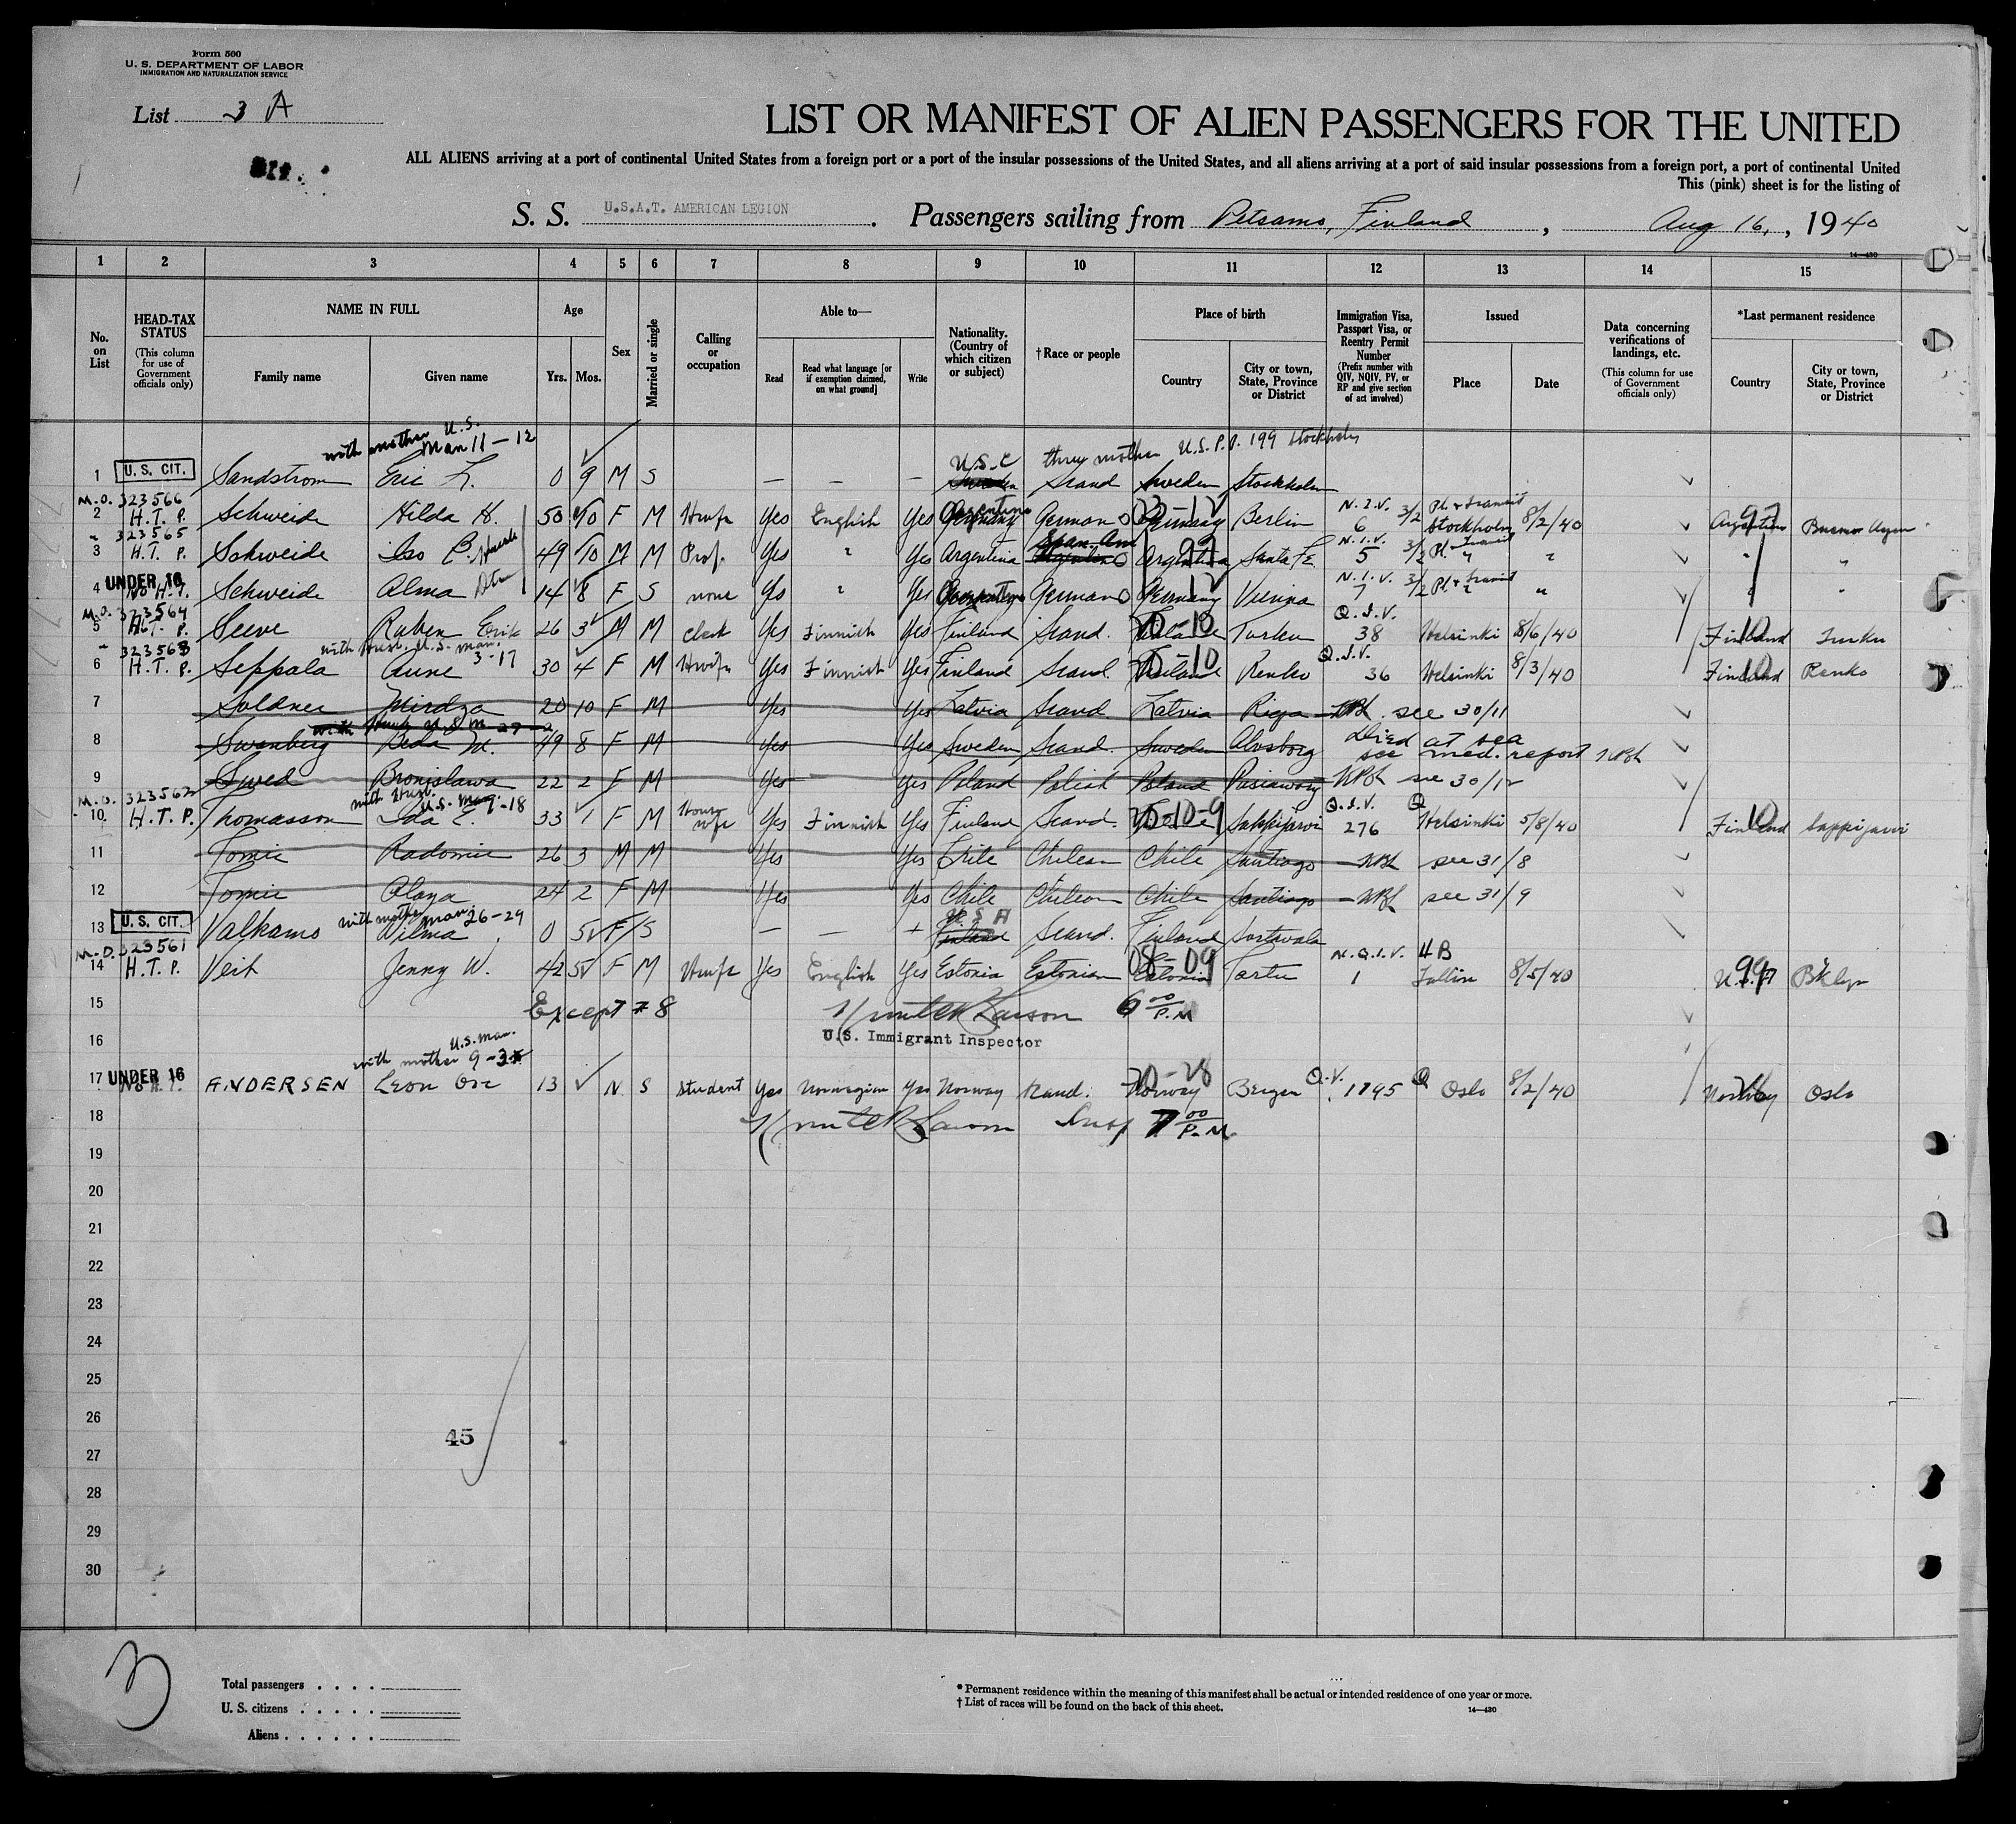 Form 500
U. S. DEPARTMENT OF LABOR
IMMIGRATION AND NATURALIZATION SERVICE
List 3 A
LIST OR MANIFEST OF ALIEN PASSENGERS FOR THE UNITED
ALL ALIENS arriving at a port of continental United States from a foreign port or a port of the insular possessions of the United States, and all aliens arriving at a port of said insular possessions from a foreign port, a port of continental United
This (pink) sheet is for the listing of
S. S. U.S.A.T. AMERICAN LEGION . Passengers sailing from Petsamo, Finland , Aug 16, , 1940
14—430
1 2 3 4 5 6 7 8 9 10 11 12 13 14 15
No. on List
HEAD-TAX STATUS (This column for use of Government officials only)
NAME IN FULL
Family name Given name
Age
Yrs. Mos.
Sex
Married or single
Calling or occupation
Able to—
Read
Read what language [or if exemption claimed, on what ground]
Write
Nationality. (Country of which citizen or subject)
†Race or people
Place of birth
Country
City or town, State, Province or District
Immigration Visa, Passport Visa, or Reentry Permit Number (Prefix number with QIV, NQIV, PV, or RP and give section of act involved)
Issued
Place Date
Data concerning verifications of landings, etc. (This column for use of Government officials only)
*Last permanent residence
Country
City or town, State, Province or District
with mother U.S. Man 11-12
U.S.C thru mother U.S.P.P. 199 Stockholm
1 U.S. CIT. Sandstrom Eric L. 0 9 M S — — — Sweden Scand Sweden Stockholm
M.O. 323566
2 H.T.P. Schweide Hilda H. 50 10 F M Hwife Yes English Yes Germany Argentina German Germany Berlin N.I.V. 6 3/2 Pl. & transit Stockholm 8/2/40 Argentina Buenos Aires
" 323565
3 H.T.P. Schweide Iso 49 10 M M Prof. Yes " Yes Argentina Span. Am Argentina Santa Fe N.I.V. 5 3/2 Pl. Transit " " " "
4 UNDER 16 No H.T. Schweide Alma Dtr 14 8 F S none Yes " Yes German Germany Vienna N.I.V. 7 3/2 Pl. & transit " " " "
M.O. 323564
5 H.T.P. Seeve Ruben Erik 26 3 M M Clerk Yes Finnish Yes Finland Scand. Finland Turku Q.I.V. 38 Helsinki 8/6/40 Finland Turku
" 323563 with Husb. U.S. man. 3-17
6 H.T.P. Seppala Aune 30 4 F M Hwife Yes Finnish Yes Finland Scand. Finland Renko Q.I.V. 36 Helsinki 8/3/40 Finland Renko
7 Soldner Mirdza 20 10 F M Yes Yes Latvia Scand. Latvia Riga see 30/11
8 Swanberg Beda M. 49 8 F M Yes Yes Sweden Scand. Sweden Alvsborg Died at sea see med. report
9 Swed Bronislawa 22 2 F M Yes Yes Poland Polish Poland see 30/12
M.O. 323562 with Husb. U.S. Man 9-18
10 H.T.P. Thomasson Ida E. 33 1 F M House wife Yes Finnish Yes Finland Scand. Sakkijarvi Q.I.V. 276 Helsinki 5/8/40 Finland
11 Tomic Radomir 26 3 M M Yes Yes Chile Chilean Chile Santiago see 31/8
12 Tomic Olaya 24 2 F M Yes Yes Chile Chilean Chile Santiago see 31/9
13 U.S. CIT. Valkamo with mother man 26-29 Wilma 0 5 F S — — Finland U S A Scand. Finland Sortavala
M.O. 323561
14 H.T.P. Veit Jenny W. 42 5 F M Hwife Yes English Yes Estonia Estonian Estonia Tartu N.Q.I.V. 4B 1 Tallin 8/5/40 U.S.A Bklyn
15 Except #8 Larson 6 00 P.M
16 U.S. Immigrant Inspector
with mother U.S. man. 9-3
17 UNDER 16 No H.T. ANDERSEN Leon 13 M S Student Yes Norwegian Yes Norway Scand. Norway Bergen Q.V. 1195 Oslo 8/2/40 Norway Oslo
18 Larson Insp 7 00 P.M.
19
20
21
22
23
24
25
26
45
27
28
29
30
3
Total passengers . . . .
U. S. citizens . . . . .
Aliens . . . . . .
* Permanent residence within the meaning of this manifest shall be actual or intended residence of one year or more.
† List of races will be found on the back of this sheet.
14—430